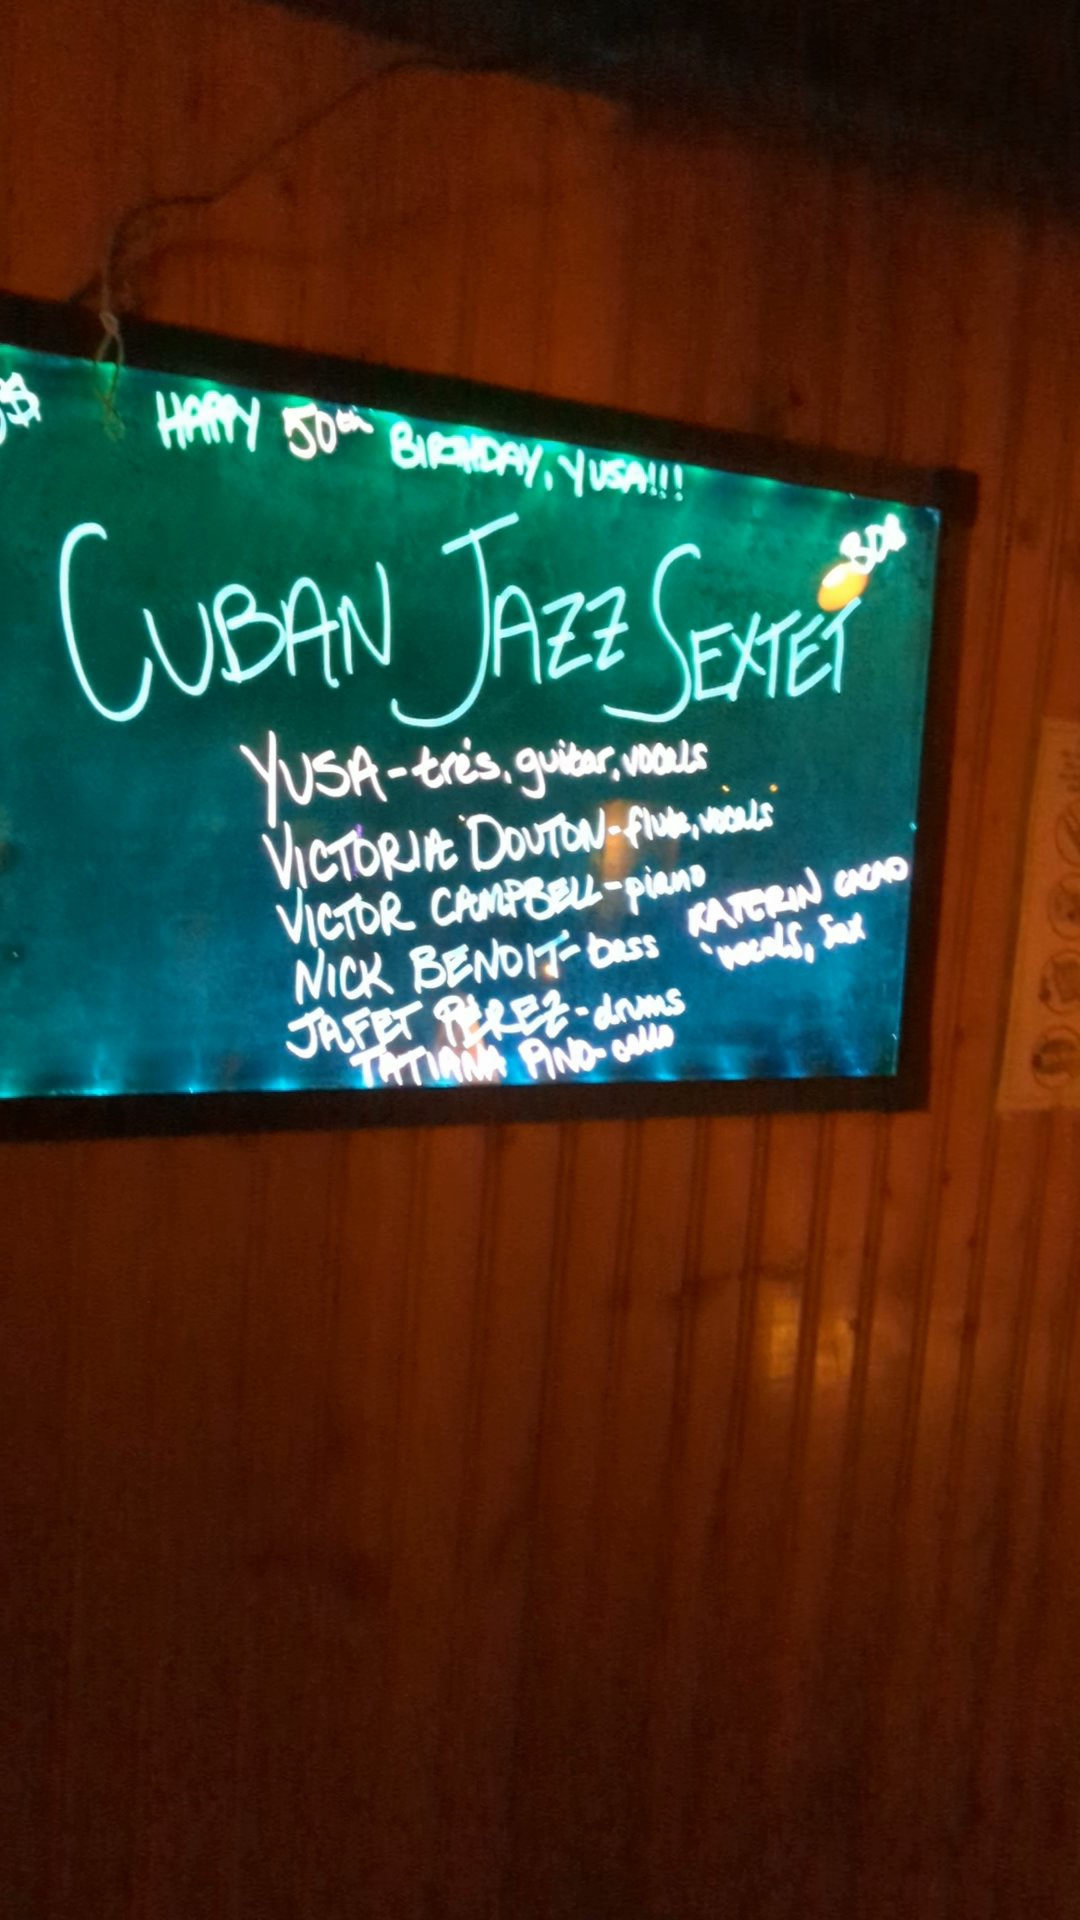 HAPPY 50th BIRTHDAY, YUSA!!!
CUBAN JAZZ SEXTET
YUSA-tres, guitar, vocals
VICTORIA DOUTON-flute, vocals
VICTOR CAMPBELL-piano
KATERIN CACAO
vocals, sax
NICK BENOIT-bass
JAFET PEREZ-drums
TATIANA PINO-cello